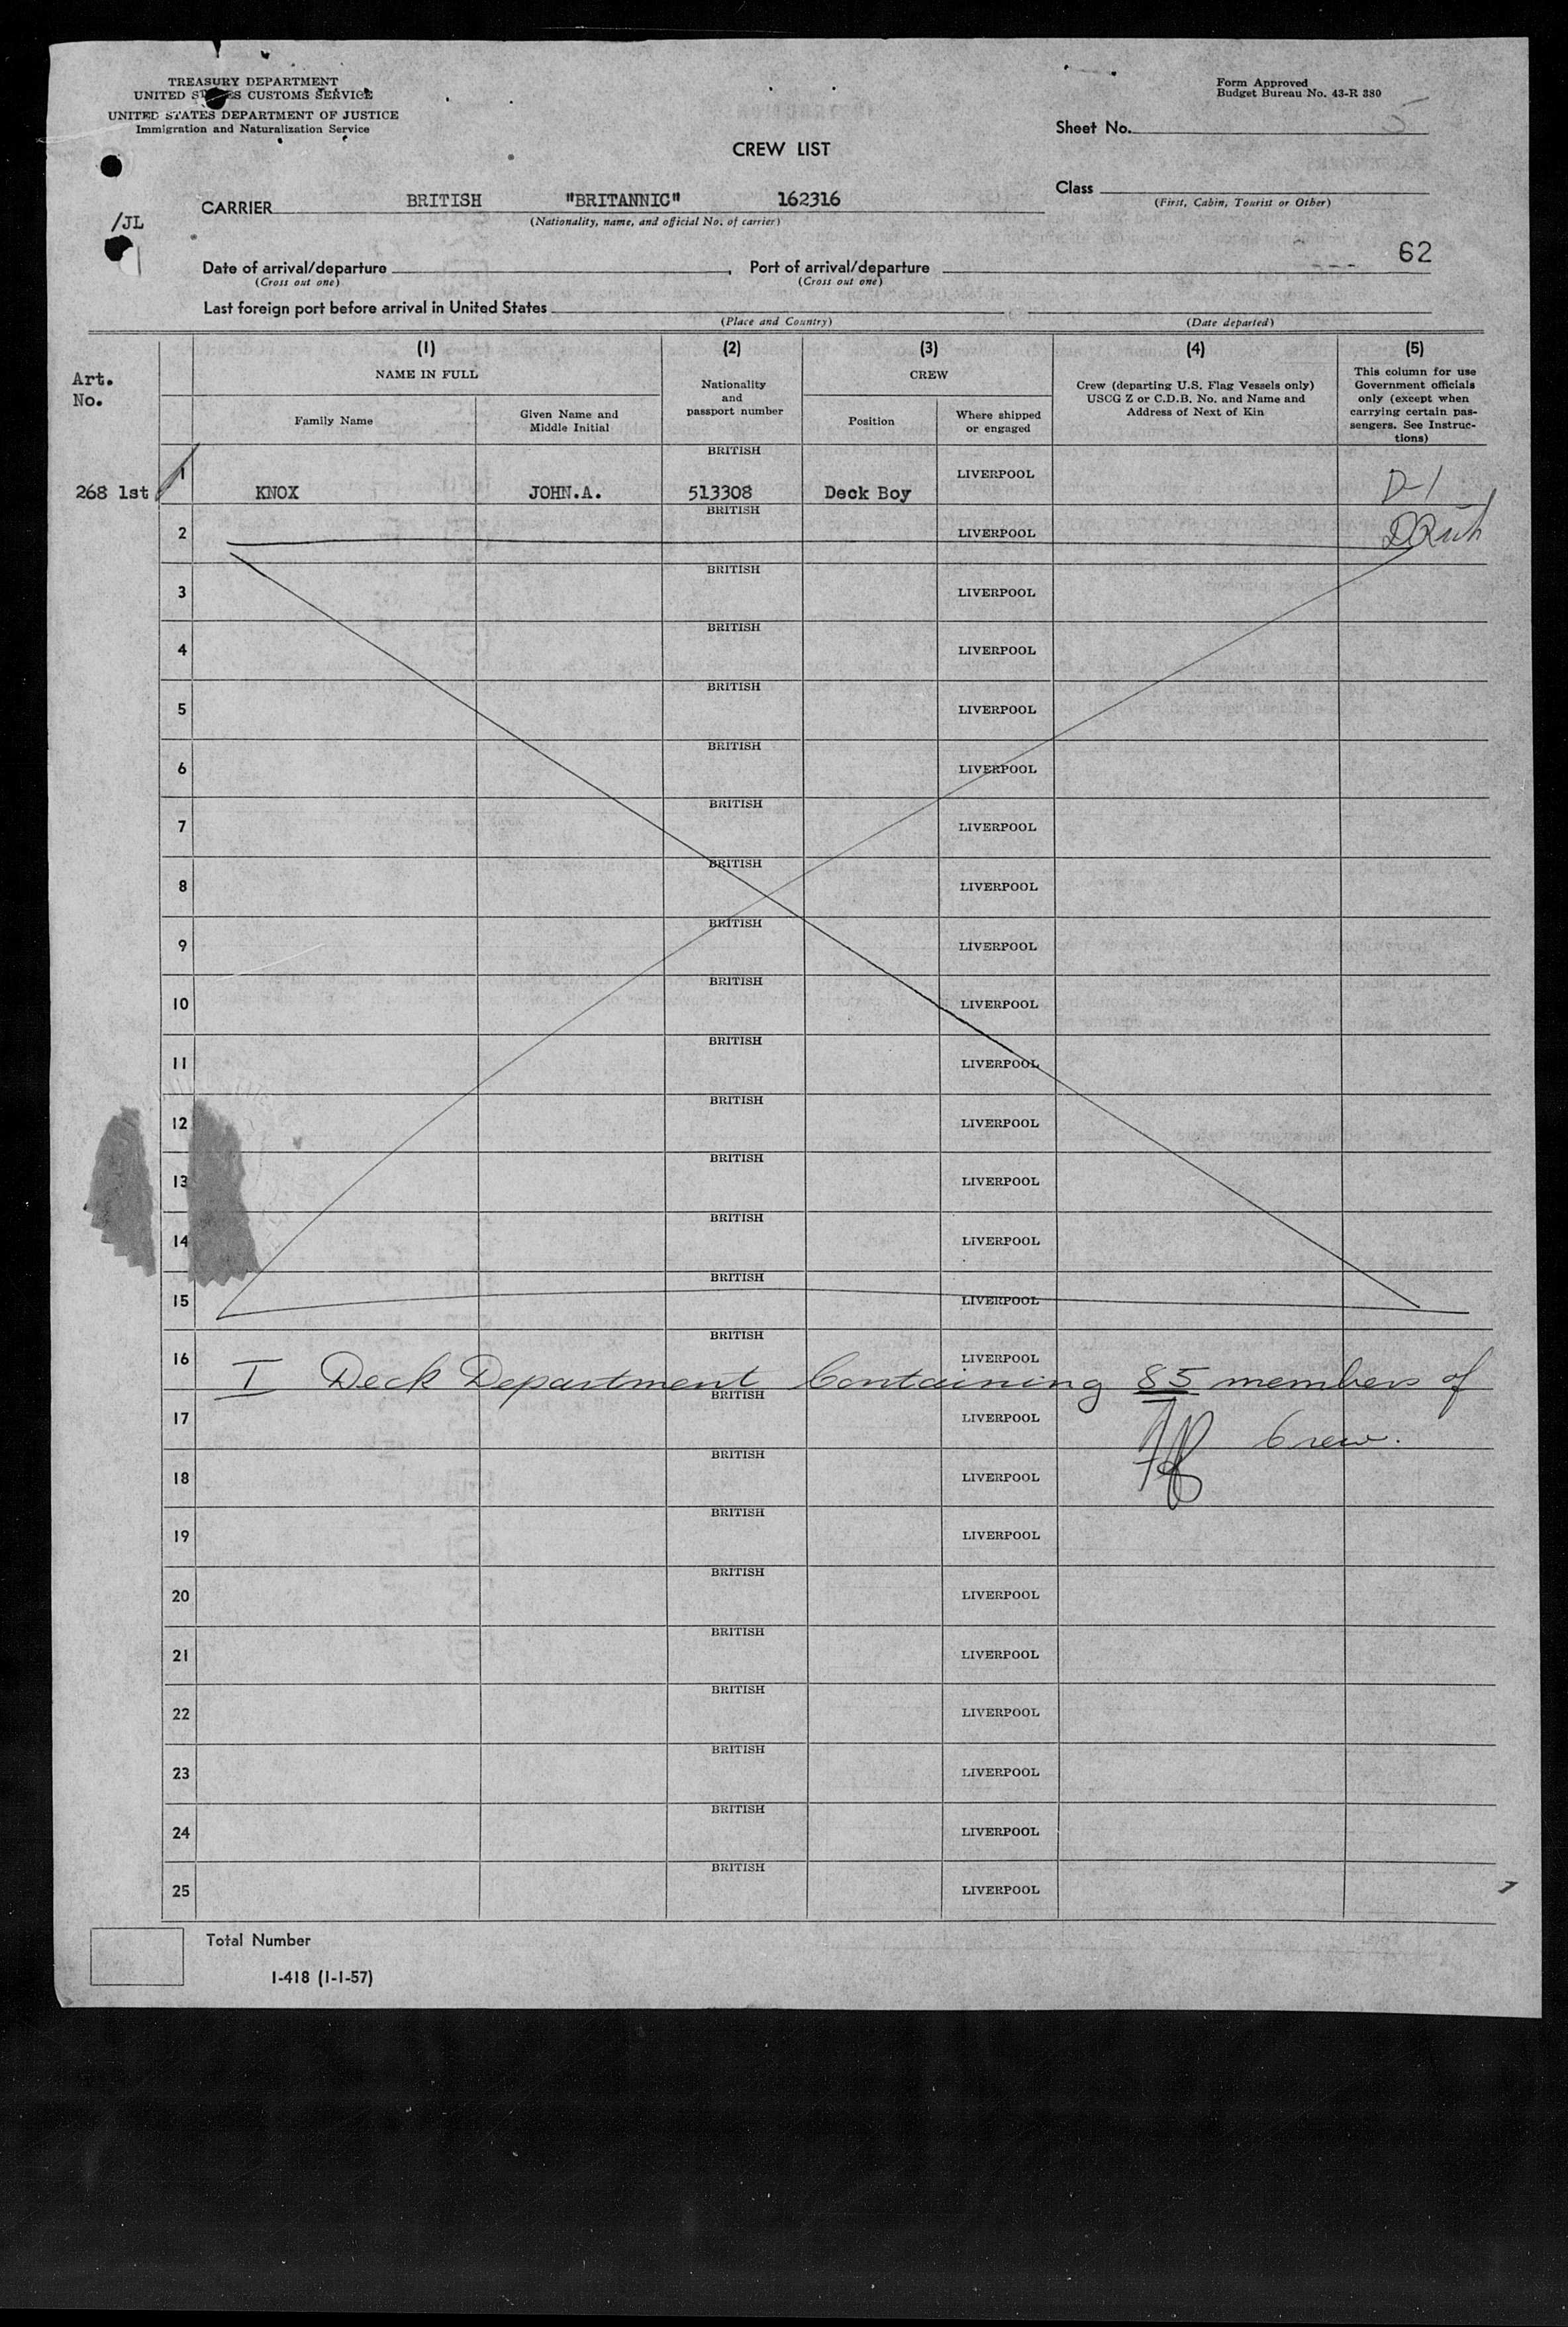 TREASURY DEPARTMENT
UNITED STATES CUSTOMS SERVICE
UNITED STATES DEPARTMENT OF JUSTICE
Immigration and Naturalization Service
Form Approved
Budget Bureau No. 43-R 380
Sheet No. 5
CREW LIST
Class
(First, Cabin, Tourist or Other)
CARRIER BRITISH "BRITANNIC" 162316
(Nationality, name, and official No. of carrier)
/JL
62
Date of arrival/departure , Port of arrival/departure
(Cross out one) (Cross out one)
Last foreign port before arrival in United States
(Place and Country) (Date departed)
Art.
No.
(1) (2) (3) (4) (5)
NAME IN FULL
Family Name
Given Name and
Middle Initial
Nationality
and
passport number
CREW
Position
Where shipped
or engaged
Crew (departing U.S. Flag Vessels only)
USCG Z or C.D.B. No. and Name and
Address of Next of Kin
This column for use
Government officials
only (except when
carrying certain pas-
sengers. See Instruc-
tions)
BRITISH
1 LIVERPOOL
268 1st KNOX JOHN.A. 513308 Deck Boy D-1
BRITISH
2 LIVERPOOL
BRITISH
3 LIVERPOOL
BRITISH
4 LIVERPOOL
BRITISH
5 LIVERPOOL
BRITISH
6 LIVERPOOL
BRITISH
7 LIVERPOOL
BRITISH
8 LIVERPOOL
BRITISH
9 LIVERPOOL
BRITISH
10 LIVERPOOL
BRITISH
11 LIVERPOOL
BRITISH
12 LIVERPOOL
BRITISH
13 LIVERPOOL
BRITISH
14 LIVERPOOL
BRITISH
15 LIVERPOOL
BRITISH
16 LIVERPOOL
I Deck Department Containing 85 members of
BRITISH
17 LIVERPOOL
Crew.
BRITISH
18 LIVERPOOL
BRITISH
19 LIVERPOOL
BRITISH
20 LIVERPOOL
BRITISH
21 LIVERPOOL
BRITISH
22 LIVERPOOL
BRITISH
23 LIVERPOOL
BRITISH
24 LIVERPOOL
BRITISH
25 LIVERPOOL
Total Number
I-418 (1-1-57)